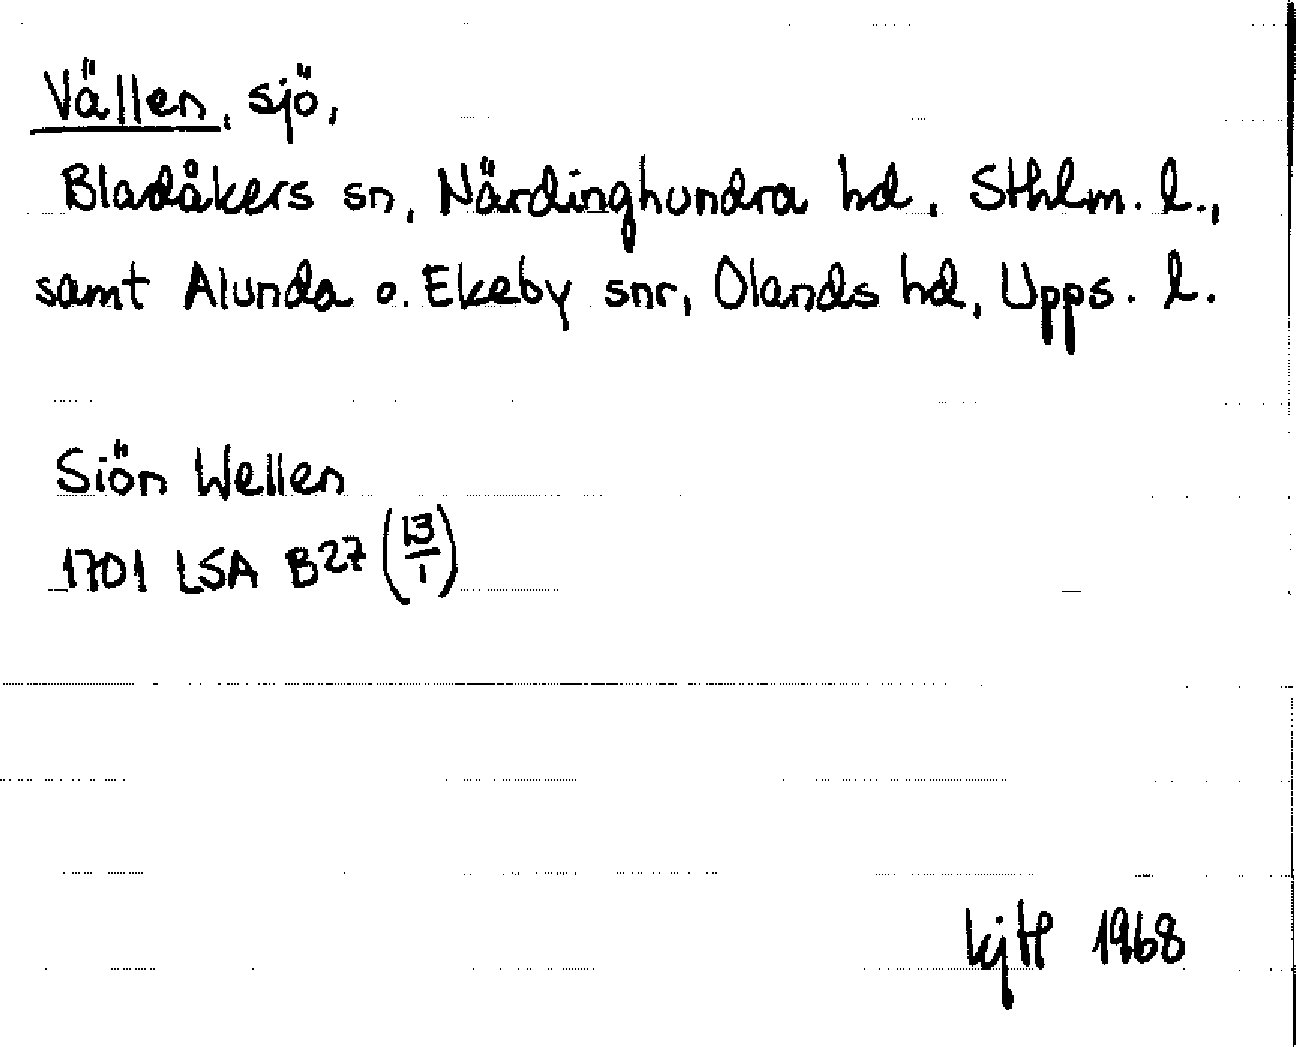 Vällen, sjö,
Bladåkers sn, Närdinghundra hd, Sthlm. l.,
samt Alunda o. Ekeby snr, Olands hd, Upps. l.
Siön Wellen
1701 LSA B27 (13/1)
1968